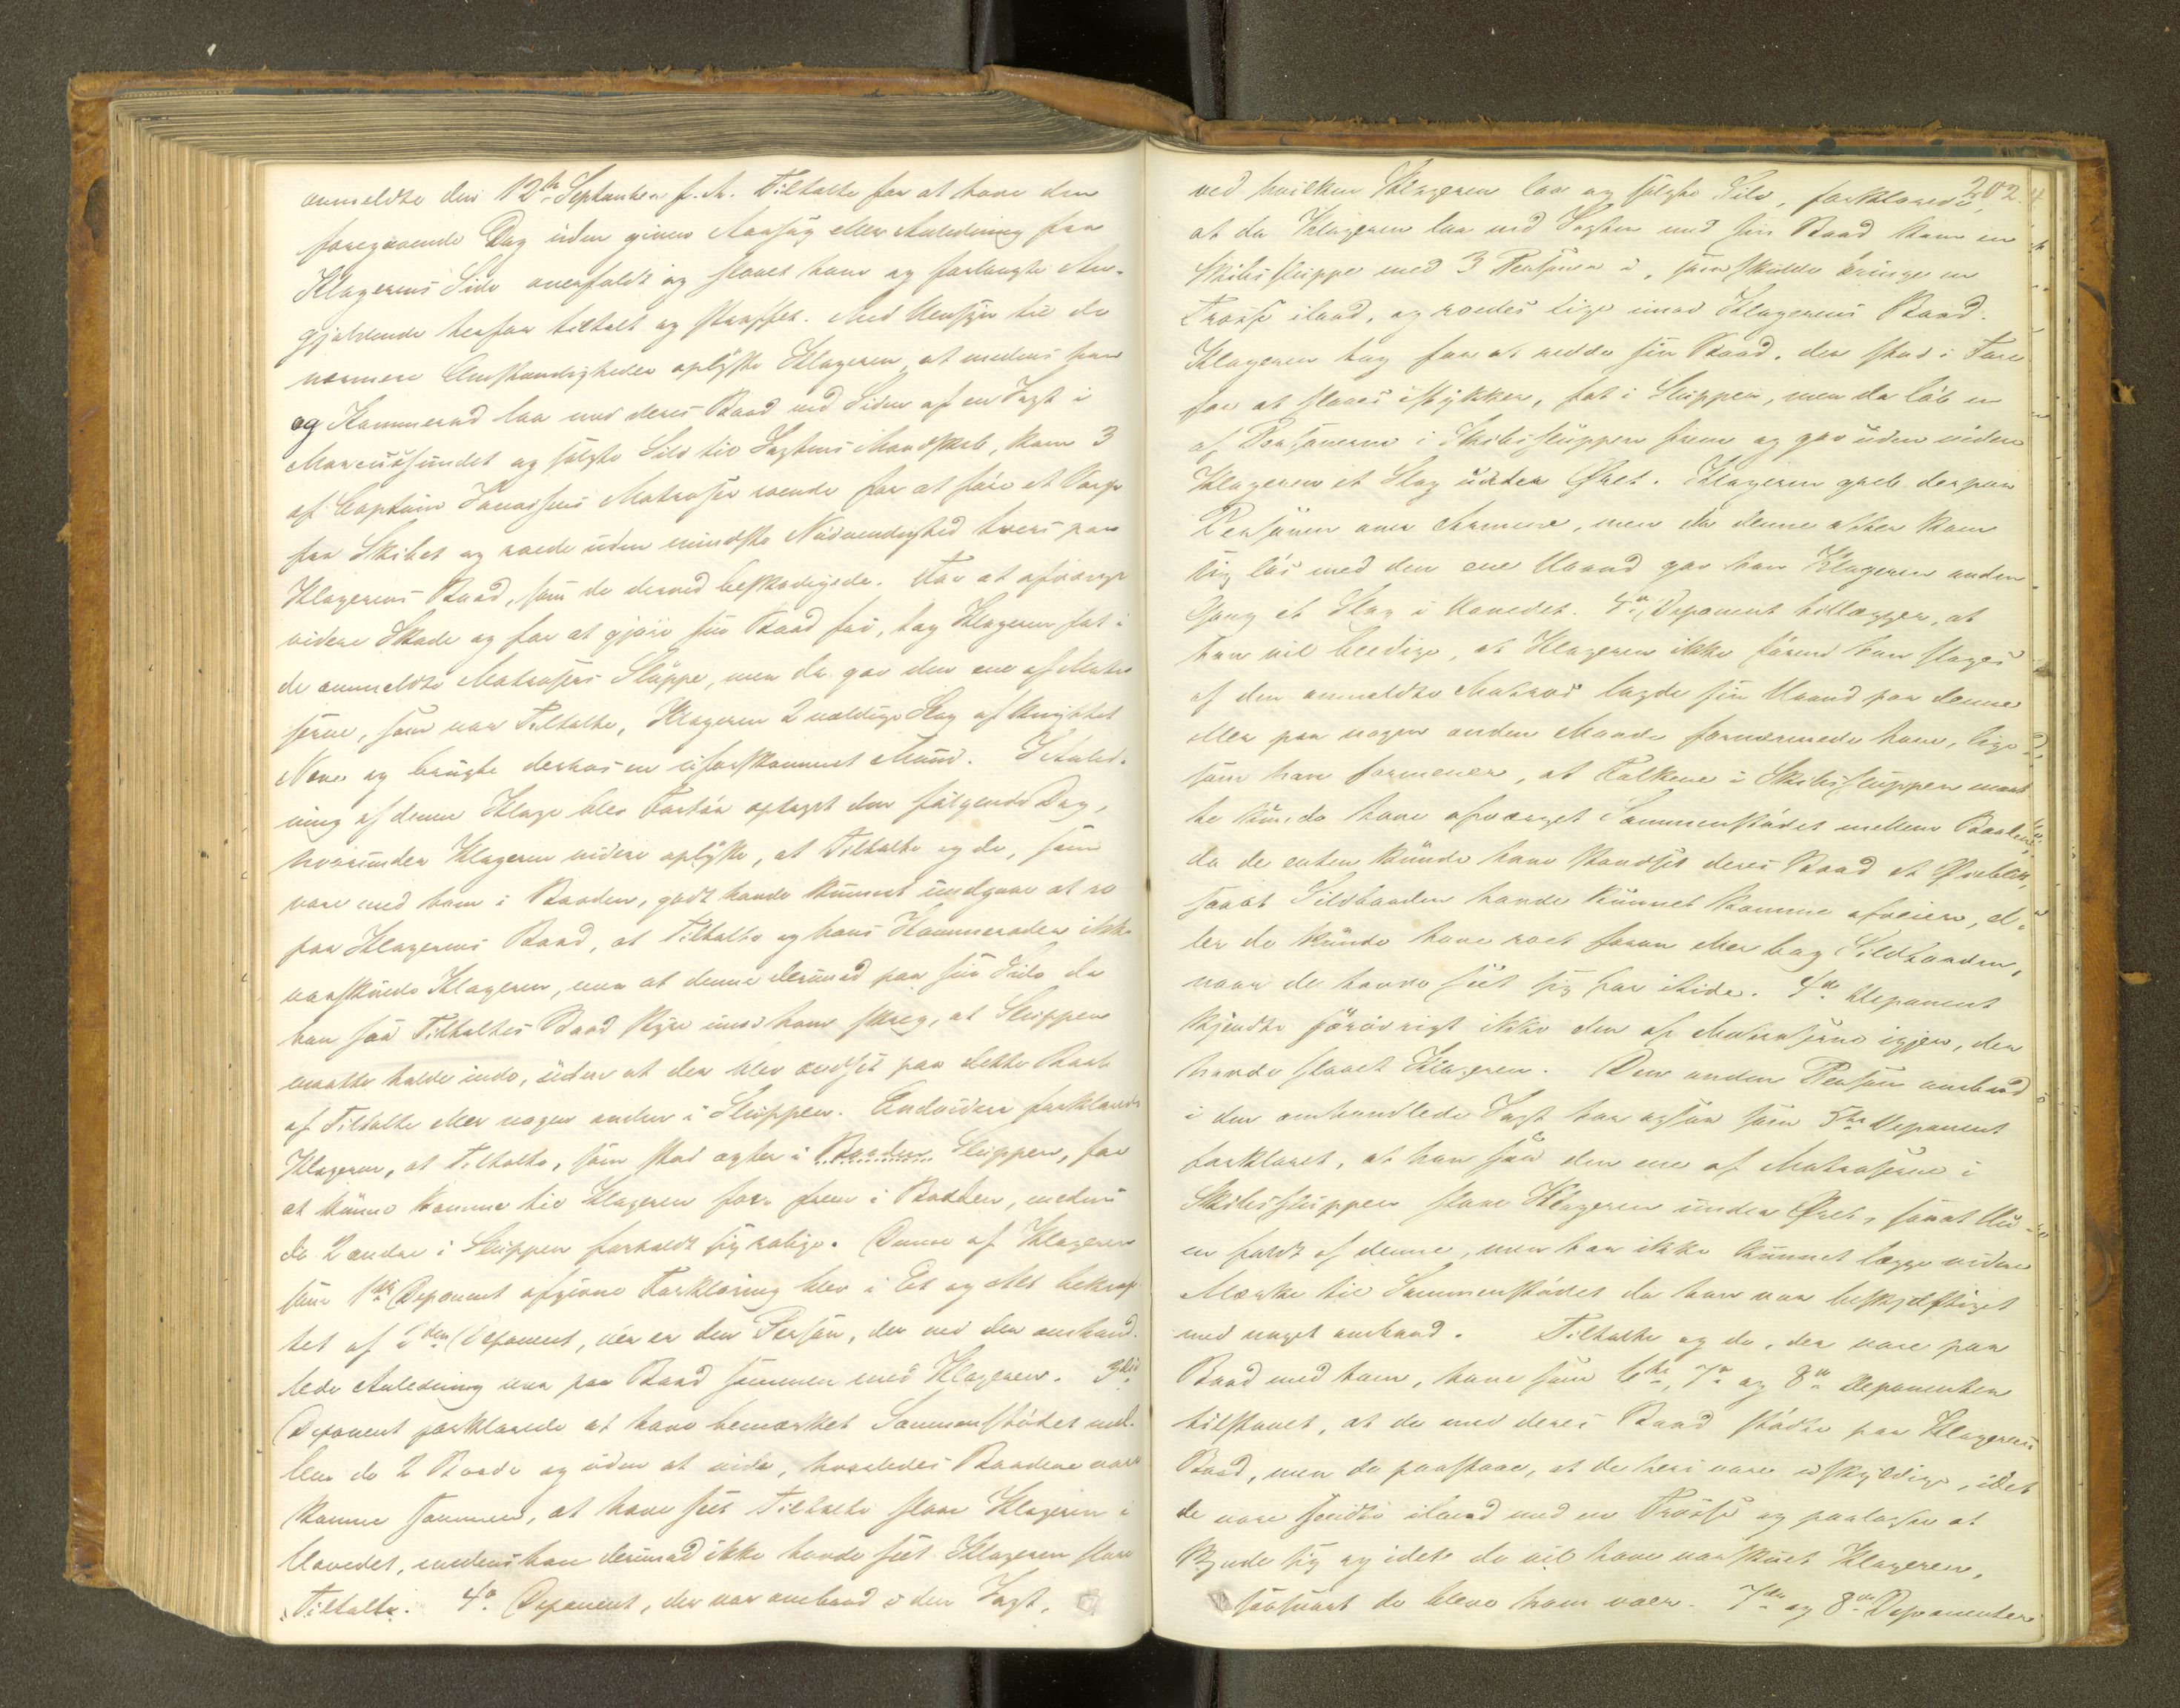 anmeldte den 12te September f. A. Tiltalte for at have den
foregaaende Dag uden given Aarsag eller Anledning fra
Klagerens Side overfaldt og slaaet ham og forlangte Ved-
gjældende herfor tiltalt og straffet. Med Hensyn til de
nærmere Omstændigheder oplyste Klageren, at medens han
og Kammerad laa med deres Baad ved Siden af en Jagt i
og solgte Sild til Jagtens Mandskab, kom 3
af Captain Matroser roende for at føre et Varp
fra Skibet og roede uden mindste Nødvendighed tvers paa
Klagerens Baad, som de derved beskadigede. For at afværge
videre Skade og for at gjøre sin Baad fri, tog Klageren fat i
de anmeldte Matrosers Sluppe, men da gav den ene af Matro
serne, som var Tiltalte, Klageren 2 vældige Slag af knyttet
Næve og brugte derhos en uforskammet Mund. I Anled-
ning af denne Klage blev Forhør optaget den følgende Dag,
hvorunder Klageren videre oplyste, at Tiltalte og de, som
vare med ham i Baaden, godt havde kunnet undgaae at ro
paa Klagerens Baad, at Tiltalte og hans Kammerader ikke
varskuede Klageren, men at denne derimod paa sin Side da
han saa Tiltaltes Baad styre imod ham skreg, at Sluppen
maatte holde inde, uden at der blevændset paa dette Raab
af Tiltalte eller nogen anden i Sluppen. Endvidere forklarede
Klageren, at Tiltalte, som stod agter i Baaden Sluppen, for
at kunne komme til Klageren foer frem i Baaden, medens
de 2 andre i Sluppen forholdt sig rolige. Denne af Klageren
som 1ste Deponent afgivne Forklaring blev i Et og Alt bekræf
tet af 2den Deponent, der er den Person, der ved den omhand-
lede Anledning var paa Baad sammen med Klageren. 3die
Deponent forklarede at have bemærket Sammenstødet mel-
lem de 2 Baade og uden at vide, hvorledes Baadene vare
komne sammen, at have seet Tiltalte slaae Klageren i
Hovedet, medens han derimod ikke havde seet Klageren slaae
Tiltalte. 4de Deponent, der var ombord i den Jagt,
202.
ved hvilken Klageren laa og solgte Sild, forklarede,
at da Klageren laa ved Jagten med sin Baad kom en
Skibssluppe med 3 Personer i, som skulde bringe en
Trosse iland, og roedes lige imod Klagerens Baad.
Klageren tog for at redde sin Baad, der stod i Fare
for at slaaes istykker, fat i Sluppen, men da løb en
af Personerne i Skibssluppen frem og gav uden videre
Klageren et Slag under Øret. Klageren greb derpaa
Personen om Armene, men da denne atter kom
sig løs med den ene Haand gav han Klageren anden
Gang et Slag i Hovedet. 4de Deponent tillægger, at
han vil beedige, at Klageren ikke førend han sloges
af den anmeldte Matros lagde sin Haand paa denne
eller paa nogen anden Maade fornærmede ham, lige
som han formener, at Folkene i Skibssluppen
kunde have afværget Sammenstødet mellem Baadene,
da de enten kunde have standset deres Baad et Øieblik,
saaat Sildbaaden havde kunnet komme afveien, el-
ler de kunde have roet foran eller bag Sildbaaden,
naar de havde seet sig for itide. 4de Deponent
kjendte forøvrigt ikke den af Matroserne igjen, der
havde slaaet Klageren. Den anden Person ombord
i den omhandlede Jagt har ogsaa som 5te Deponent
forklaret, at han saa den ene af Matroserne i
Skibssluppen slaae Klageren under Øret, saaat Hu-
en faldt af denne, men har ikke kunnet lægge videre
Mærke til Sammenstødet da han var beskjæftiget
med noget ombord. Tiltalte og de, der vare paa
Baad med ham, have som 6te, 7de og 8de Deponenter
tilstaaet, at de med deres Baad stødte paa Klagerens
Baad, men de paastaae, at de heri vare uskyldige, idet
de vare sendte iland med en Trosse og paalagte at
skynde sig og idet de vil have varskuet Klageren,
saasnart de bleve ham vaer. 7de og 8de Deponenter